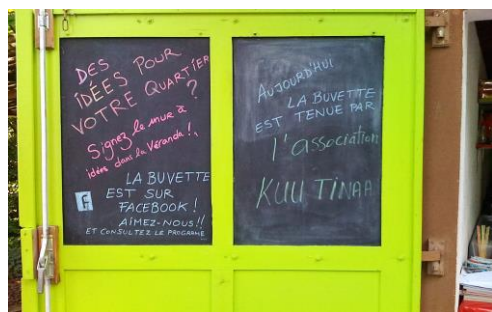 DES
IDÉES POUR
VOTRE QUARTIER
?
Signez le mur à
idées dans la Véranda !
LA BUVETTE
f EST SUR
FACEBOOK !
AIMEZ-NOUS !!
ET CONSULTEZ LE PROGRAMME
AUJOURD'HUI
LA BUVETTE
EST TENUE PAR
l'association
KUU TINAA